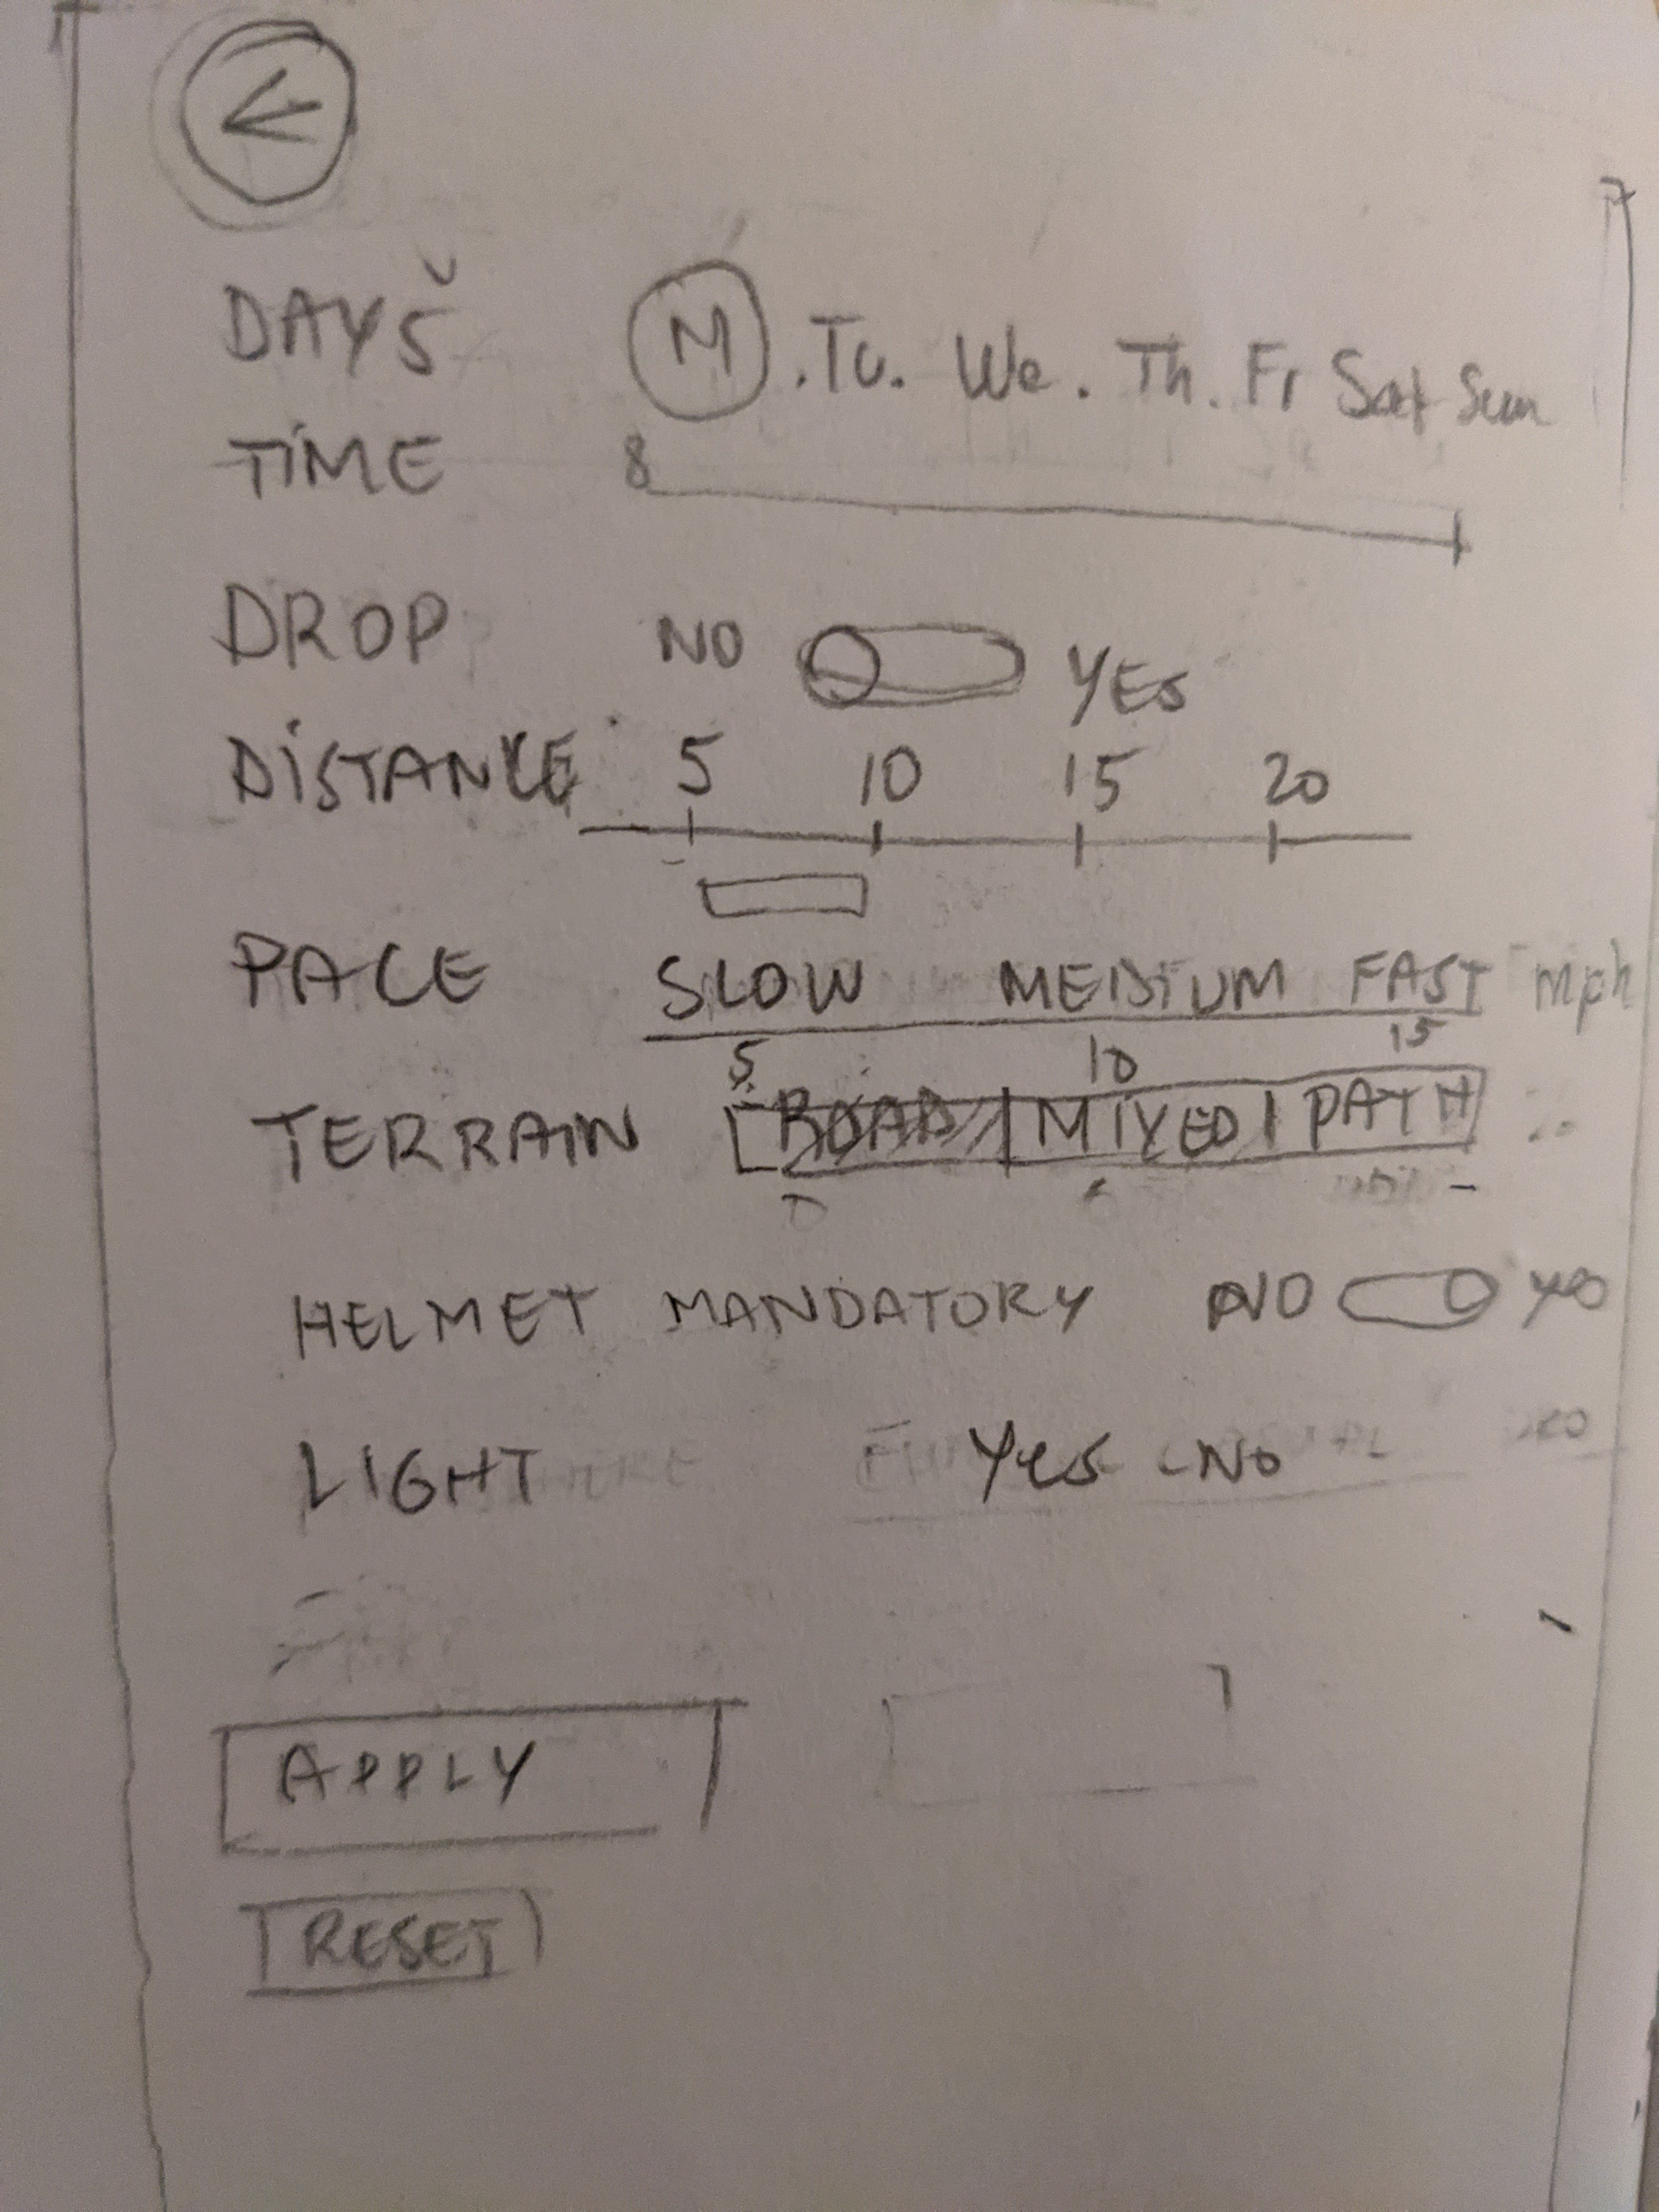 DAYS M . Tu. We. Th. Fr Sat Sun
TIME 8
DROP NO YES
DISTANCE 5 10 15 20
PACE SLOW MEDIUM FAST mph
5 10 15
TERRAIN ROAD MIXED PATH
HELMET MANDATORY NO
LIGHT Yes - No
APPLY
RESET